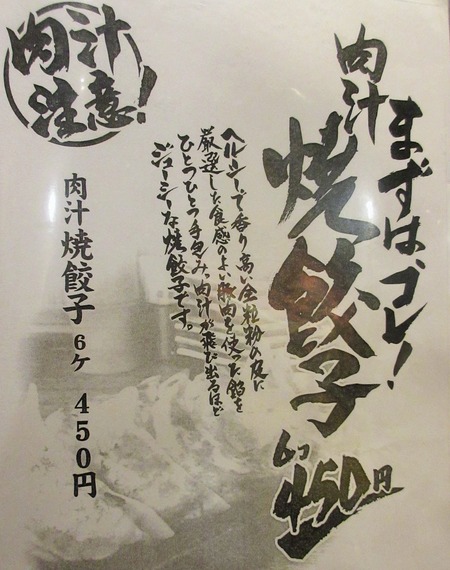 まずはコレ!
肉汁
焼餃子
6つ
450円
ヘルシーで香り高い全粒粉の皮に
厳選した食感のよい豚肉を使った餡を
ひとつひとつ手包み。肉汁が飛び出るほど
ジューシーな焼餃子です。
肉汁
注意!
肉汁焼餃子 6ケ 450円